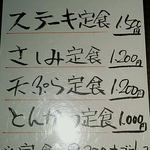 ステーキ定食 1,500円
さしみ定食 1,200円
天ぷら定食 1,200円
とんかつ定食 1,000円